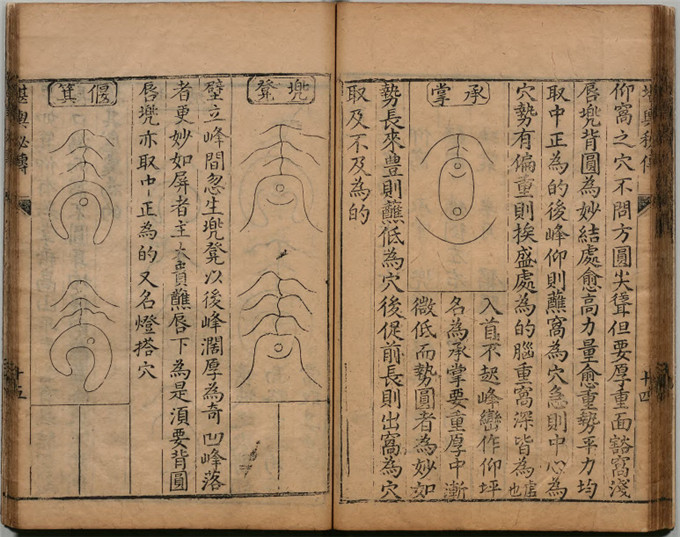 堪輿秘傳
十四
仰窩之穴不問方圓尖聳但要厚重面豁窩淺
唇兠背圓為妙結處愈高力量愈重勢平力均
取中正為的後峰仰則蘸窩為穴急則中心為
穴勢有偏重則挨盛處為的腦重窩深皆為虛也
承掌
入首不起峰巒作仰坪
名為承掌要重厚中漸
微低而勢圓者為妙如
勢長來豊則蘸低為穴後促前長則出窩為穴
取及不及為的
兠凳
壁立峰間忽生兠凳以後峰濶厚為奇凹峰落
者更妙如屏者主大貴蘸唇下為是須要背圓
唇兠亦取中正為的又名燈搭穴
偃箕
堪輿秘傳
十五